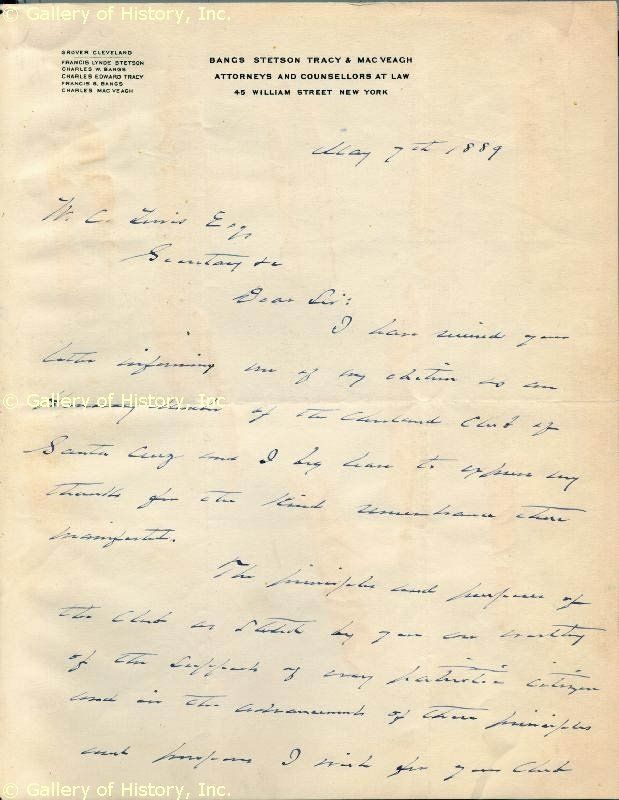 © Gallery of History, Inc.
GROVER CLEVELAND
FRANCIS LYNDE STETSON
CHARLES W. BANGS
CHARLES EDWARD TRACY
FRANCIS S. BANGS
CHARLES MAC VEAGH
BANGS STETSON TRACY & MAC VEAGH
ATTORNEYS AND COUNSELLORS AT LAW
45 WILLIAM STREET NEW YORK
May 7th 1889
W. C. Esq
Secretary &c
Dear Sir:
I have received your
letter informing me of my election as an
honorary member of the Cleveland Club of
© Gallery of History, Inc.
Santa Cruz and I beg leave to express my
thanks for the kind remembrance there
manifested.
The principles and purposes of
the Club as stated by you are worthy
of the support of every patriotic citizen
and in the advancement of these principles
and purposes I wish for your Club
© Gallery of History, Inc.